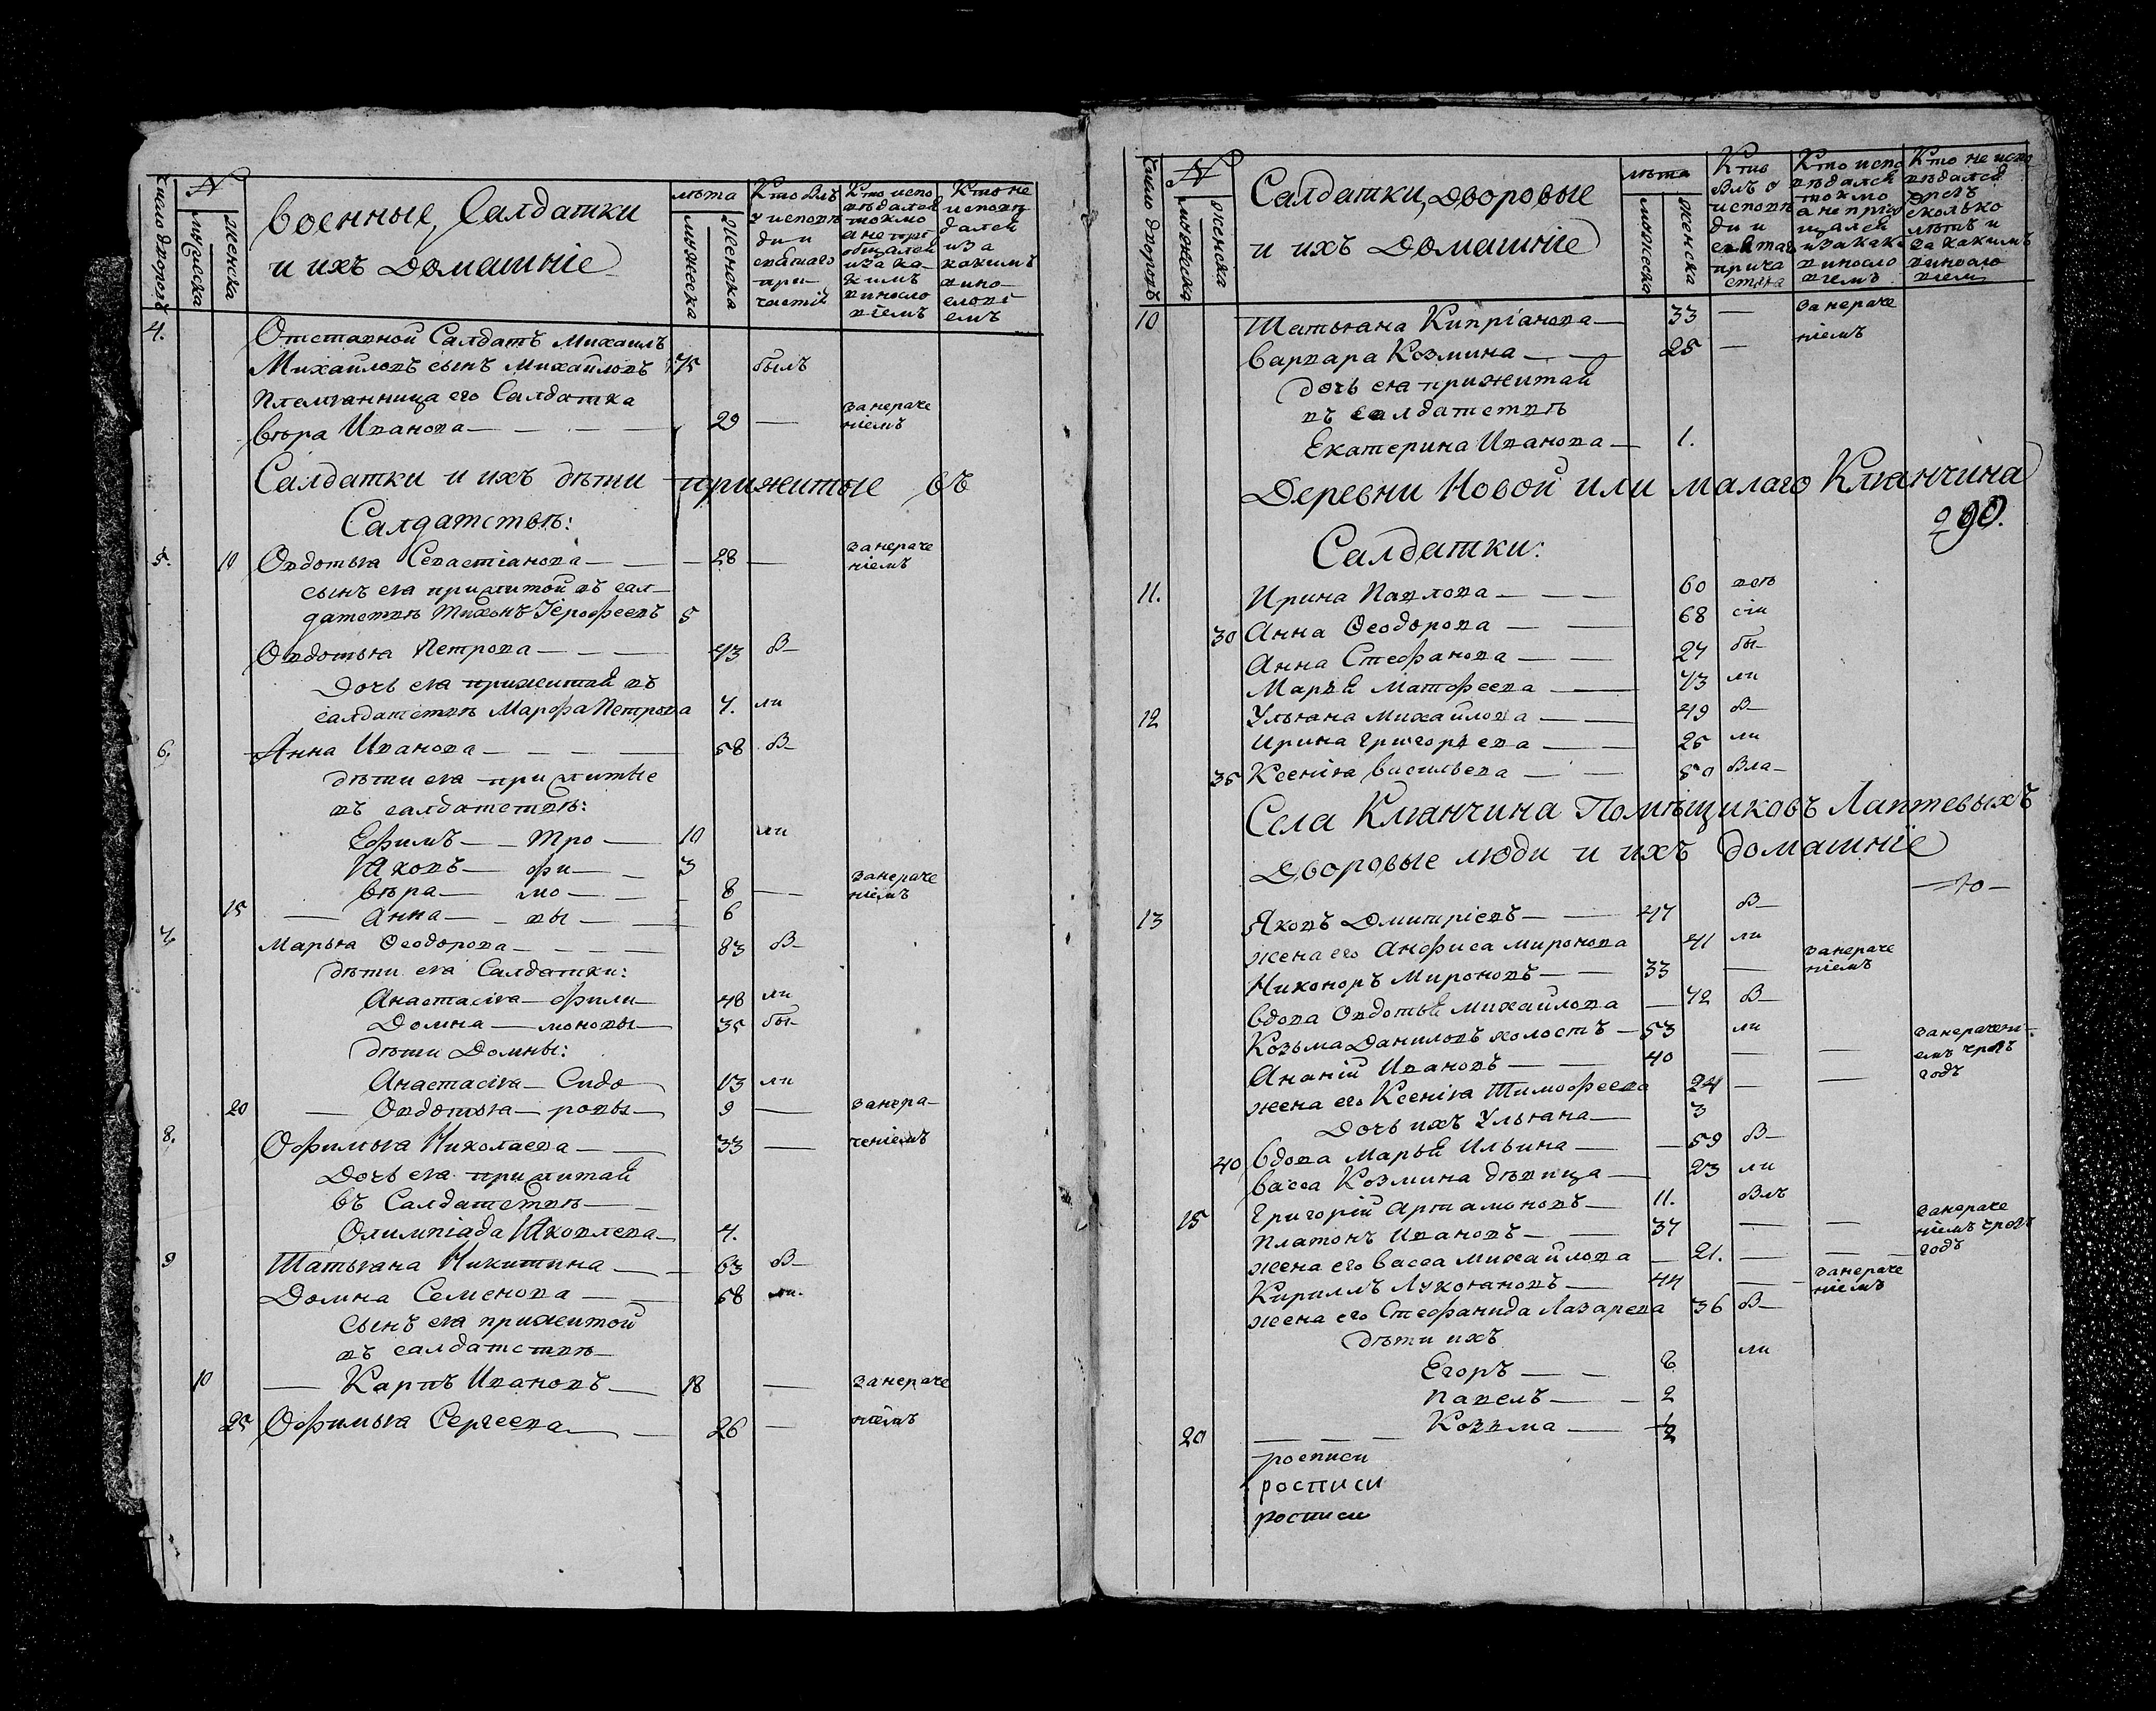 число дворовъ
N
мужеска
женска
военные, Салдатки
и ихъ домашніе
лѣта
мужеска
женска
Кто былъ
у исповѣ
ди и
святаго
при-
частія
Кто испо
вѣдался
токмо
а не прі
общался
и за ка-
кимъ
виносло
віемъ
Кто не
исповѣ
дался
и за
какимъ
вино-
слові
емъ
4. Отставной Салдатъ Михаилъ
Михайловъ сынъ Михайловъ 75 былъ
Племянница его Салдатка
Вѣра Иванова — 29 — за нераче
ніемъ
Салдатки и ихъ дѣти прижитые въ
Салдатствѣ:
5. 10 Овдотья Севастіанова — 28 — за нераче
ніемъ
сынъ ея прижитой въ сал-
датствѣ Тихонъ Іерофеевъ 5
Овдотья Петрова — 43 в-
Дочь ея прижитая въ
салдатствѣ Марфа Петрова 7. ли
6. Анна Иванова — 58 в-
дѣти ея прижитые
въ салдатствѣ:
Ефимъ — Тро — 10 ли
Яковъ — фи — 3
Вѣра — мо — 8 — за нераче
ніемъ
15 — Анна — вы — 6
7. Марья Феодорова — 83 в-
дѣти ея Салдатки:
Анастасія — Фили — 48 ли
Домна — моновы — 35 бы-
дѣти Домны:
Анастасія — Сидо 13 ли
20 — Овдотья — ровы — 9 — за нера-
8. Офимья Николаева — 33 — ченіемъ
Дочь ея прижитая
въ Салдатствѣ —
Олимпіада Яковлева — 4.
9 Татьяна Никитина — 63 в-
Домна Семенова — 58 ли-
Сынъ ея прижитой
въ салдатствѣ
10 — Карпъ Ивановъ — 18 — за нераче
25 Офимья Сергеева — 26 — ніемъ
число дворовъ
N
мужеска
женска
Салдатки, Дворовые
и ихъ Домашніе
лѣта
мужеска
женска
Кто
былъ у
исповѣ
ди и
святаг
прича
стія
Кто испо
вѣдался
токмо
а не приоб
щался
и за каки
виносло
віемъ
Кто не испо
вѣдался
сколько
лѣтъ и
за какимъ
виносло
віем
10 Татьяна Кипріанова — 33 — за нераче
ніемъ
Варвара Козмина — 25 —
дочь ея прижитая
въ салдатствѣ
Екатерина Иванова — 1.
Деревни Новой или малаго Клянчина
290.
Салдатки:
11. Ирина Павлова — 60 всѣ
30 Анна Феодорова — 68 сіи
Анна Стефанова — 27 бы-
Марья Матфеева — 43 ли
12 Ульяна Михайлова — 49 в-
Ирина Григорьева — 25 ли
35 Ксенія Васильева — 50 Бла-
Села Клянчина Помѣщиковъ Лаптевыхъ
Дворовые люди и ихъ домашніе
13 Яковъ Дмитріевъ — 47 в-
жена его Анфиса Миронова 41 ли
Никоноръ Мироновъ — 33 — за нераче
ніемъ
вдова Овдотья Михайлова — 42 в-
Козьма Даниловъ холостъ — 53 ли
Ананій Ивановъ — 40 — — за нерачені-
емъ чрезъ
годъ
жена его Ксенія Тимофеева 24 — —
Дочь ихъ Ульяна — 3
40 вдова Марья Ильина — 59 в-
васса Козмина дѣвица — 23 ли
15 Григорій Артамоновъ — 11. былъ
Платонъ Ивановъ — 37 — — за нераче
ніемъ чрезъ
годъ
жена его Васса Михайлова — 21. — —
Кириллъ Лукояновъ — 44 — за нераче
ніемъ
жена его Стефанида Лазарева 36 в-
дѣти ихъ
Егоръ — 8 ли
Павелъ — 2
20 — Козьма — 1/2
росписи
росписи
росписи